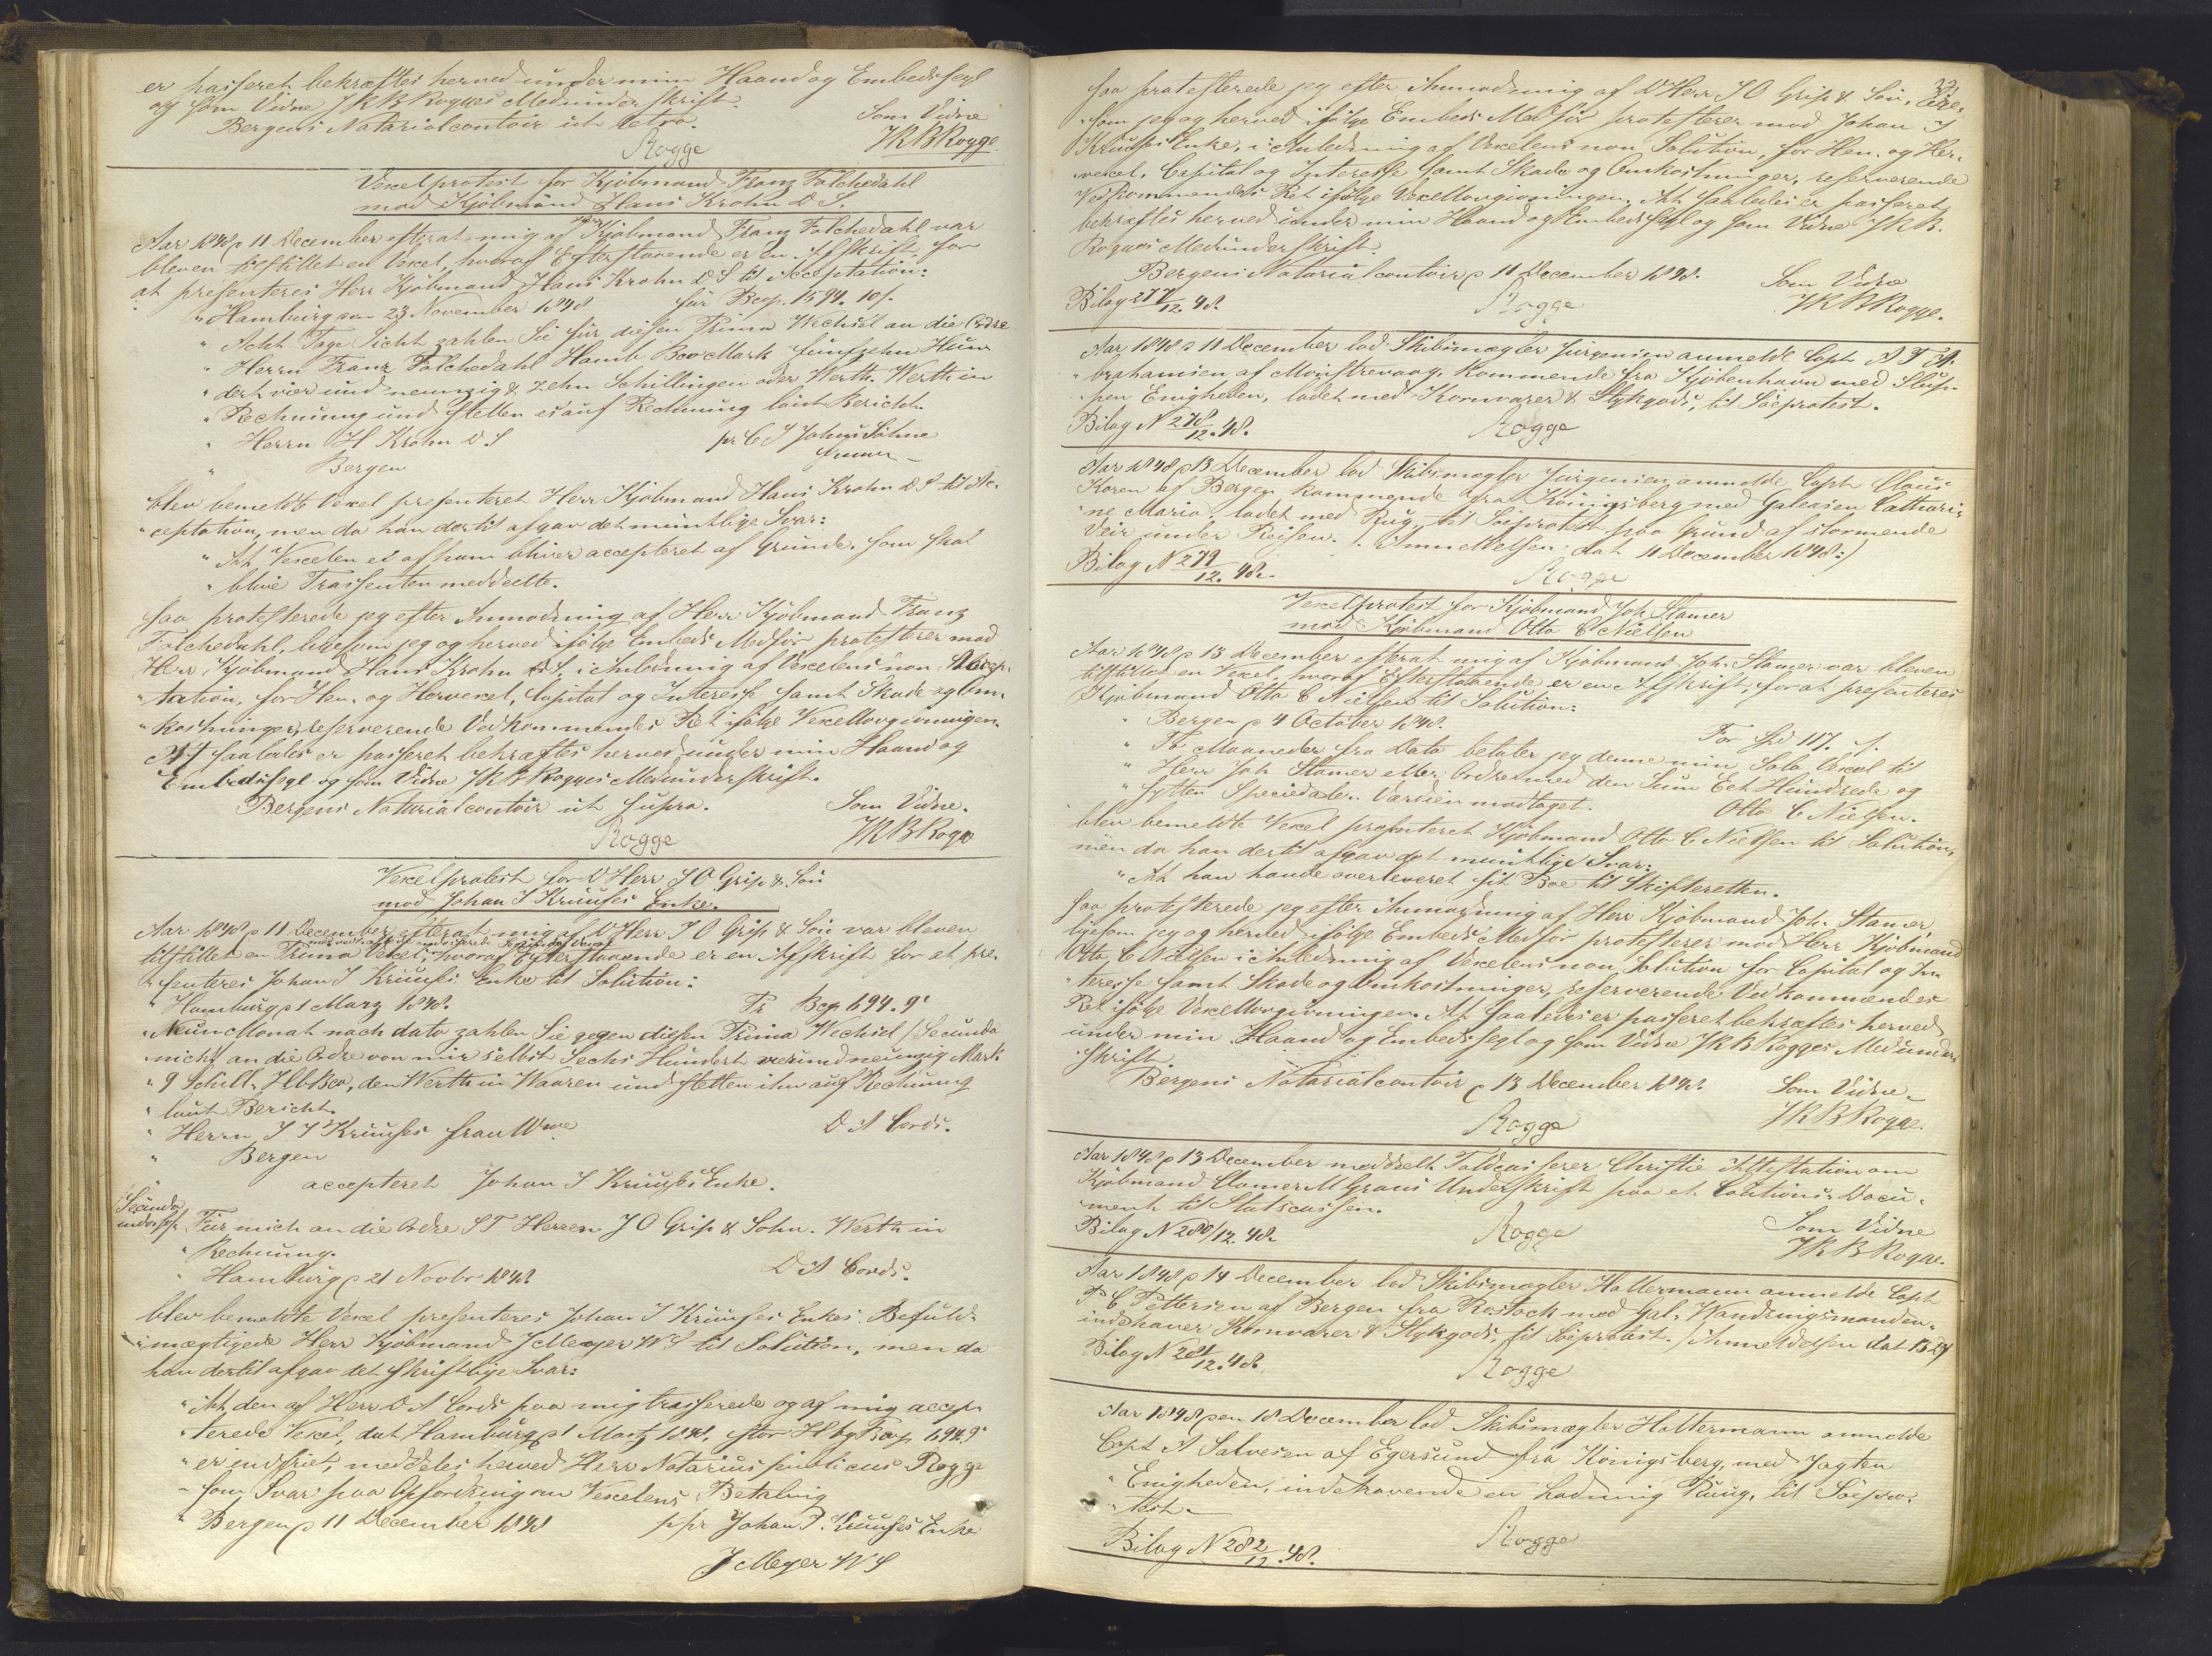 er passeret bekræftes herved under min Haand og Embedssegl
og som Vidne J K B Rogges Medunderskrift.
Bergens Notarialcontoir ut retro. Som Vidne
Rogge JKBRogge.
Vexelprotest for Kjöbmand Franz Falchedahl
mod Kjöbmand Hans Krohn D.S.
Aar 1848 p 11 December efterat mig af Herr Kjöbmand Franz Falchedahl var
bleven tilstillet en Vexel, hvoraf Efterstaaende er en Afskrift, for
at presenteres Herr Kjöbmand Hans Krohn D S til Acceptation:
" Hamburg den 23 November 1848 für Bcop. 1594. 10 s.
" Acht Tage Sicht zahlen Sie für diesen Prima Wechsel an die Ordre
" Herrn Franz Falchedahl Hamb Bco Mark fünfzehn Hun-
" dert vier und neunzig & zehn Schillingen oder Werth. Werth in
" Rechnung und stellen es auf Rechnung laut Bericht.
" Herrn H Krohn D S pr. C J Johns Söhne
" Bergen
blev bemeldte Vexel presenteret Herr Kjöbmand Hans Krohn D S til Ac-
" ceptation, men da han dertil afgav det mundtlige Svar:
" At Vexelen ei af ham bliver accepteret af Grunde, som skal
" blive Trassenten meddeelte.
saa protesterede jeg efter Anmodning af Herr Kjöbmand Franz
Falchedahl, ligesom jeg og herved ifölge Embeds Medför protesterer mod
Herr Kjöbmand Hans Krohn D S. i Anledning af Vexelens non Accep-
" tation, for Hen- og Hervexel, Capital og Interesse samt Skade og Om-
" kostninger, reserverende Vedkommendes Ret ifölge Vexellovgivningen.
At saaledes er passeret bekræftes herved under min Haand og
Embedssegl og som Vidne JKB Rogges Medunderskrift.
Bergens Notarialcontoir ut supra. Som Vidne.
Rogge JKBRogge
Vexelprotest for D'Herr J O Grip & Sön
mod Johan J Kruuses Enke.
Aar 1848 p 11 December, efterat mig af D'Herr J O Grip & Sön var bleven
tilstillet en Prima Vexel, hvoraf Efterstaaende er en Afskrift for at pre-
" senteres Johan J Kruuses Enke til Solution:
" Hamburg p 1 Marz 1848. Pr Bcop 694. 9 s
" Neun Monat nach dato zahlen Sie gegen diesen Prima Wechsel / Secunda
" nicht an die Ordre von mir selbst Sechs Hundert vierundneunzig Mark
" 9 Schill. Hb Bco, den Werth in Waaren und stellen ihn auf Rechnung
" laut Bericht.
" Herrn J J Kruuses frau Wwe D A Cords.
" Bergen
" accepteret Johan J Kruuses Enke.
Secunda
indossr Für mich an die Ordre ST Herren J O Grip & Sohn. Werth in
" Rechnung.
" Hamburg p 21 Novbr 1848 D A Cords.
blev bemeldte Vexel presenteres Johan J Kruuses Enkes Befuld-
" mægtigede Herr Kjöbmand J Meyer W S til Solution, men da
han dertil afgav det skriftlige Svar:
" At den af Herr D A Cords paa mig trasserede og af mig accep-
" terede Vexel, dat Hamburg p 1 Martz 1848, stor Hbg Bcop 694.9 s
" er indfriet, meddeles herved Herr Notarius publicus Rogge
" som Svar paa Opfordring om Vexelens Betaling
" Bergen p 11 December 1848 ppr Johan J. Kruuses Enke
J Meyer W S
saa protesterede jeg efter Anmodning af D'Herr J O Grip & Sön, lige-
" som jeg og herved ifölge Embeds Medför protesterer mod Johan J
Kruuses Enke, i Anledning af Vexelens non Solution, for Hen- og Her-
" vexel, Capital og Interesse samt Skade og Omkostninger, reserverende
Vedkommendes Ret ifölge Vexellovgivningen. At saaledes er passeret,
bekræftes herved under min Haand og Embedssegl og som Vidne JKB.
Rogges Medunderskrift.
Bergens Notarialcontoir p 11 December 1848. Som Vidne
Bilag 277/12.48. Rogge JKBRogge.
Aar 1848 p 11 December lod Skibsmægler Jürgensen anmelde Capt A T A-
" brahamsen af Monstrevaag, kommende fra Kjöbenhavn med Slup-
" pen Enigheden, ladet med Kornvarer & Stykgods, til Söeprotest.
Bilag N 278/12.48. Rogge
Aar 1848 p 13 December lod Skibsmægler Jürgensen anmelde Capt Claus
Koren af Bergen kommende fra Königsberg med Galeasen Cathari-
" ne Marie, ladet med Rug, til Söeprotest paa Grund af stormende
Veir under Reisen. /: Anmeldelsen dat 11 December 1848:/
Bilag N 279/12.48. Rogge
Vexelprotest for Kjöbmand Joh. Stamer
mod Kjöbmand Otto C Nielsen
Aar 1848 p 13 December efterat mig af Kjöbmand Joh. Stamer var bleven
tilstillet en Vexel, hvoraf Efterstaaende er en Afskrift, for at presenteres
Kjöbmand Otto C Nielsen til Solution:
" Bergen p 4 October 1848. For Spd 117. s.
" To Maaneder fra Dato betaler jeg denne min Sola Vexel til
" Herr Joh Stamer eller Ordre med den Sum Eet Hundrede og
" sytten Speciedaler. Værdien modtaget. Otto C Nielsen.
blev bemeldte Vexel presenteret Kjöbmand Otto C Nielsen til Solution,
men da han dertil afgav det mundtlige Svar:
" At han havde overleveret sit Boe til Skifteretten.
saa protesterede jeg efter Anmodning af Herr Kjöbmand Joh. Stamer,
ligesom jeg og herved ifölge Embeds Medför protesterer mod Herr Kjöbmand
Otto C Nielsen i Anledning af Vexelens non Solution for Capital og In-
" teresse samt Skade og Omkostninger, reserverende Vedkommendes
Ret ifölge Vexellovgivningen. At saaledes er passeret bekræftes herved
under min Haand og Embedssegl og som Vidne JKB Rogges Medunder-
" skrift.
Bergens Notarialcontoir p 13 December 1848. Som Vidne
Rogge JKBRogge.
Aar 1848 p 13 December meddeelt Toldcasserer Christie Attestation om
Kjöbmand Clamer M Grans Underskrift paa et Cautions-Docu-
" ment til Statscassen. Som Vidne
Bilag N 280/12.48. Rogge JKBRogge.
Aar 1848 p 14 December lod Skibsmægler Holtermann anmelde Capt
P C Pettersen af Bergen fra Rostock med Gal. Wandringsmanden,
indehaver Kornvarer & Stykgods, til Söeprotest. /: Anmeldelsen dat 13 ds
Bilag N 281/12.48. Rogge
Aar 1848 p en 18 December lod Skibsmægler Holtermann anmelde
Capt A Salvesen af Egersund fra Königsberg, med Jagten
" Enigheden, indehavende en Ladning Ruug, til Söepro-
" test.
Bilag N 282/12.48. Rogge